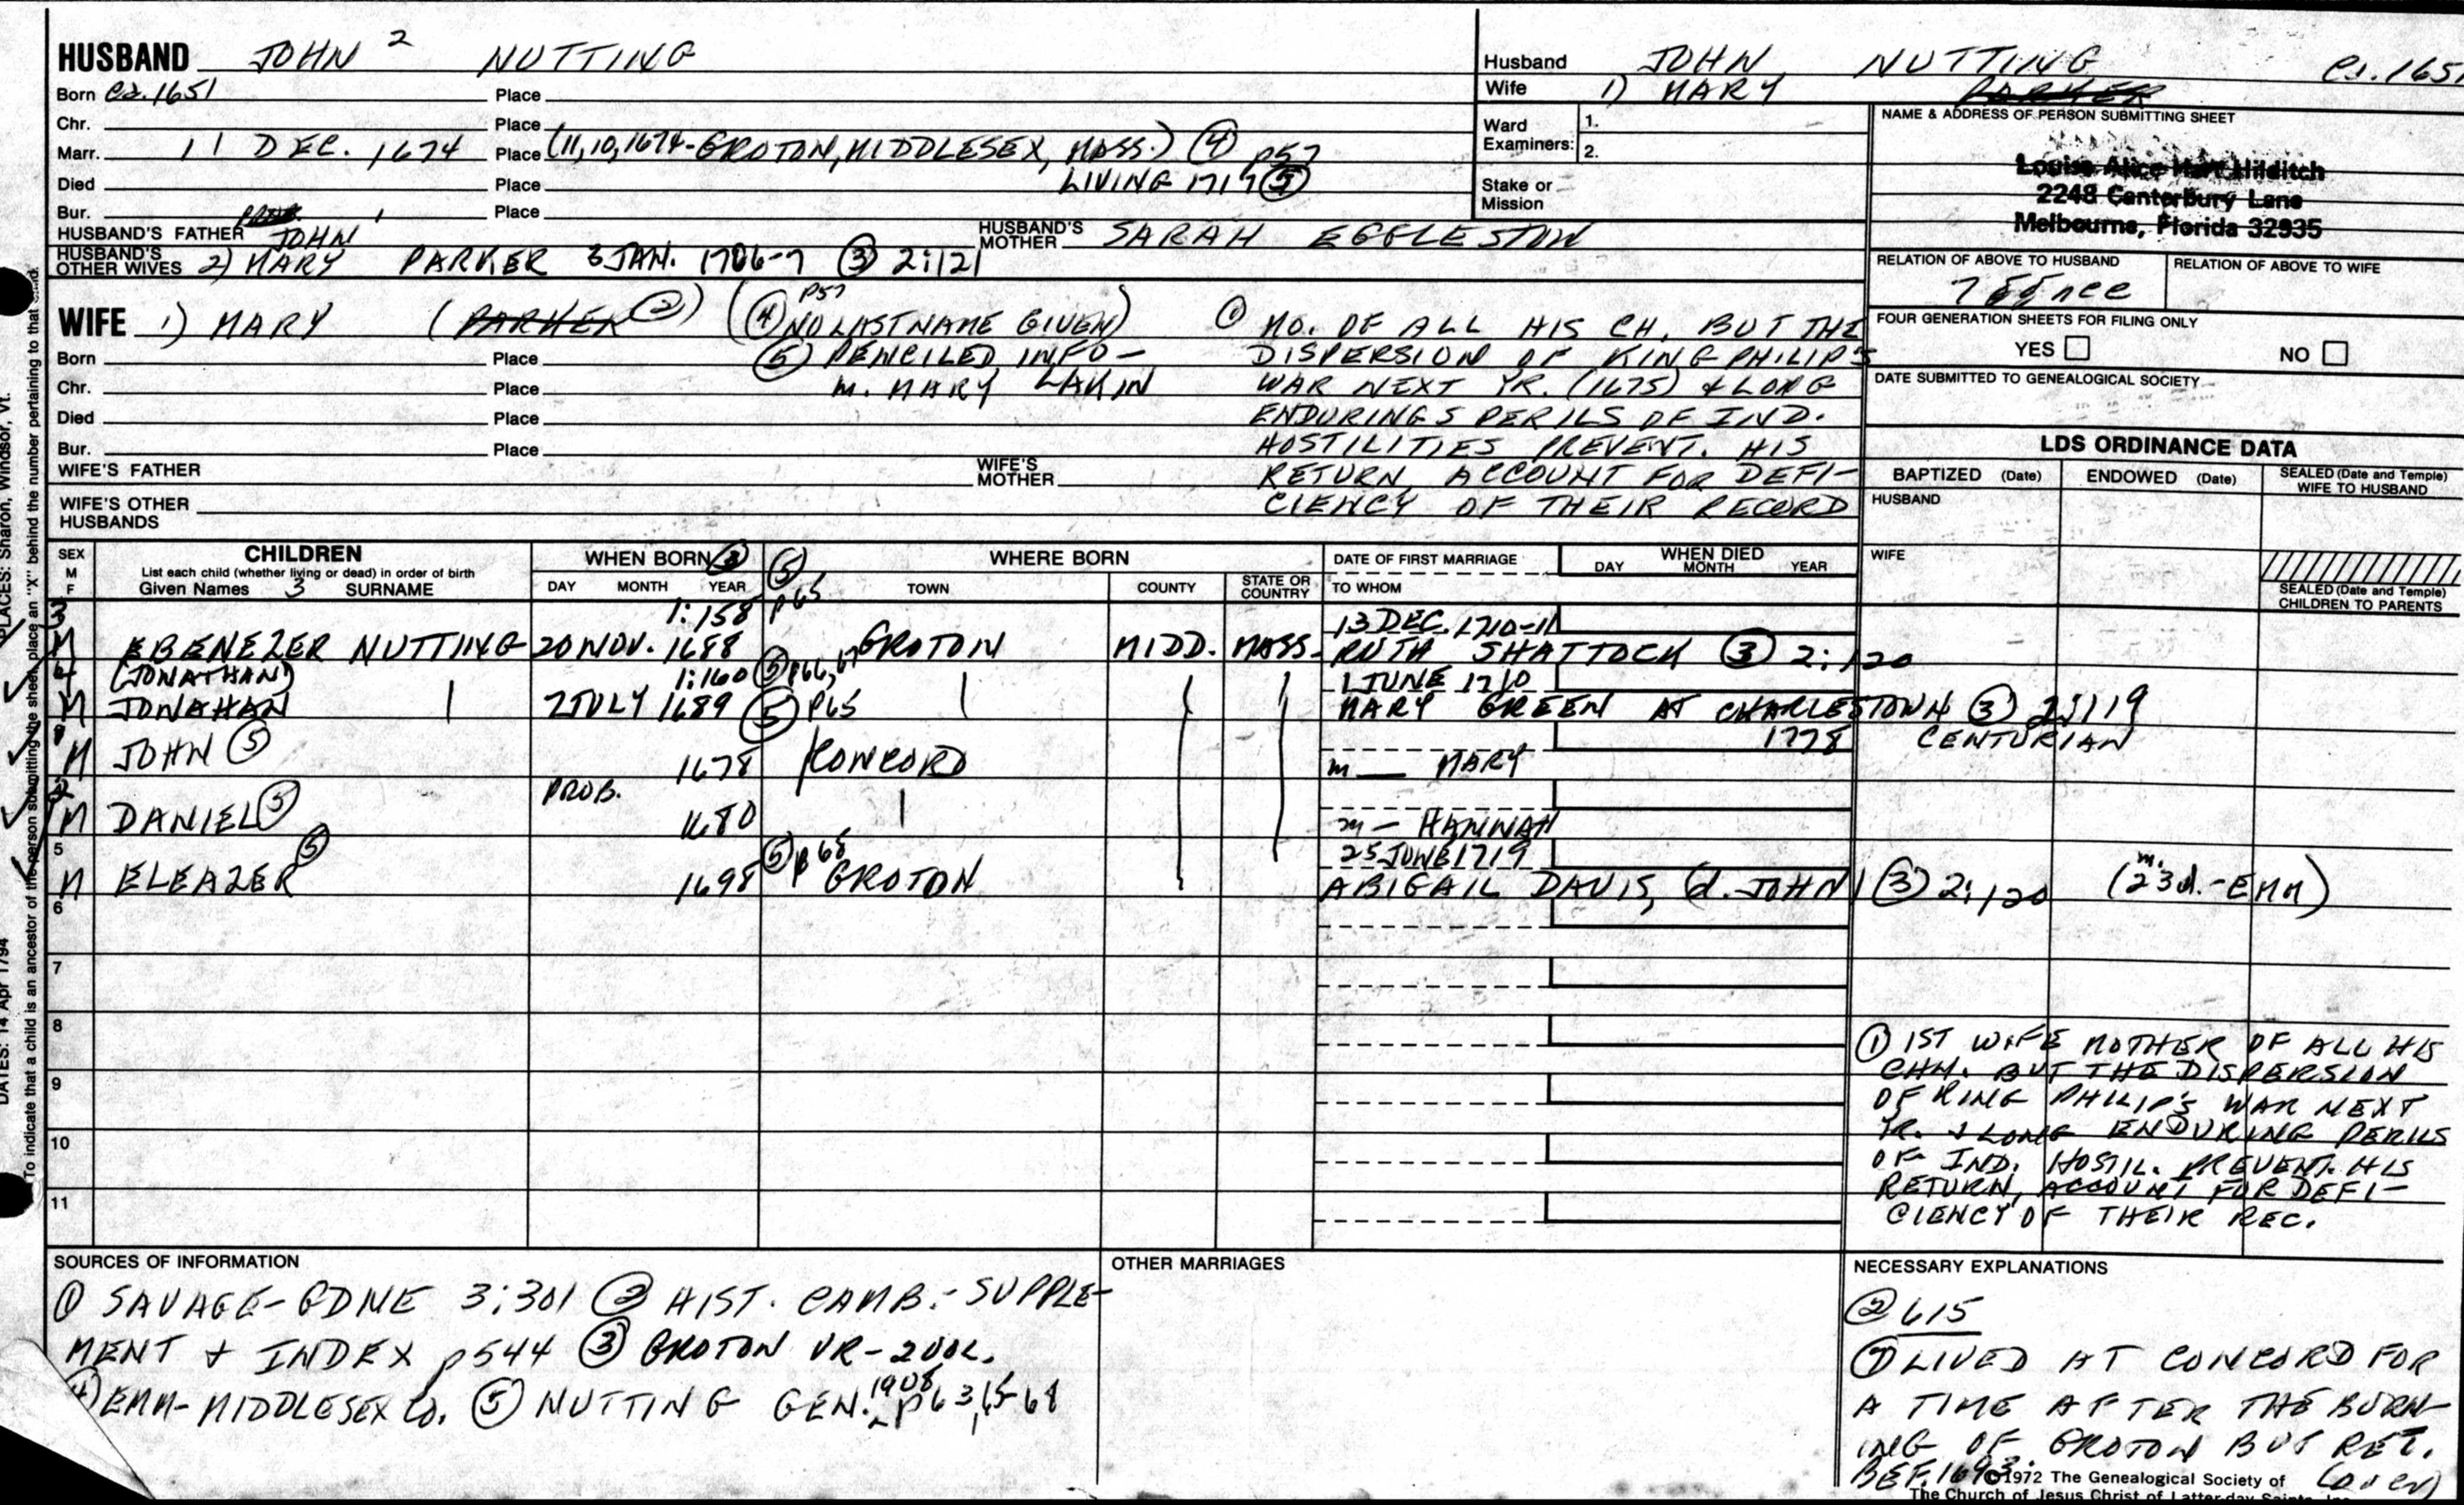 HUSBAND JOHN 2 NUTTING
Born ca. 1651 Place
Chr. Place
Marr. 11 DEC. 1674 Place (11,10,1674-GROTON, MIDDLESEX, MASS.) ④ p57
Died Place LIVING 1719 ⑤
Bur. Place
HUSBAND'S FATHER JOHN HUSBAND'S MOTHER SARAH EGGLESTON
HUSBAND'S OTHER WIVES 2) MARY PARKER 3 JAN. 1706-7 ③ 2:121
Husband JOHN NUTTING ca. 1651
Wife 1) MARY PARKER
Ward Examiners: 1.
2.
Stake or Mission
NAME & ADDRESS OF PERSON SUBMITTING SHEET
Louise Alice Hart Hilditch
2248 Canterbury Lane
Melbourne, Florida 32935
RELATION OF ABOVE TO HUSBAND RELATION OF ABOVE TO WIFE
FOUR GENERATION SHEETS FOR FILING ONLY
YES NO
DATE SUBMITTED TO GENEALOGICAL SOCIETY
WIFE 1) MARY (PARKER ②) (④ p57 NO LAST NAME GIVEN)
Born Place ⑤ PENCILED INFO-
Chr. Place m. MARY LAKIN
Died Place
Bur. Place
WIFE'S FATHER WIFE'S MOTHER
WIFE'S OTHER HUSBANDS
① MO. OF ALL HIS CH, BUT THE
DISPERSION OF KING PHILIP'S
WAR NEXT YR. (1675) & LONG
ENDURING PERILS OF IND.
HOSTILITIES PREVENT. HIS
RETURN, ACCOUNT FOR DEFI-
CIENCY OF THEIR RECORD
LDS ORDINANCE DATA
BAPTIZED (Date) ENDOWED (Date) SEALED (Date and Temple) WIFE TO HUSBAND
HUSBAND
WIFE
SEALED (Date and Temple) CHILDREN TO PARENTS
SEX M F CHILDREN
List each child (whether living or dead) in order of birth
Given Names 3 SURNAME
WHEN BORN ③
DAY MONTH YEAR
⑤ WHERE BORN
TOWN COUNTY STATE OR COUNTRY
DATE OF FIRST MARRIAGE
TO WHOM
WHEN DIED
DAY MONTH YEAR
3 1:158 p65 13 DEC. 1710-11
M EBENEZER NUTTING 20 NOV. 1688 GROTON MIDD. MASS. RUTH SHATTOCK ③ 2:120
4 (JONATHAN) 1:160 ⑤ p66,67 1 JUNE 1710
M JONAHAN 2 JULY 1689 MARY GREEN AT CHARLESTOWN ③ 2:119
1 ⑤ p65 1778 CENTURIAN
M JOHN ⑤ 1678 CONCORD m MARY
2 PROB.
M DANIEL ⑤ 1680 m - HANNAH
5 ⑤ p 68 25 JUNE 1719
M ELEAZER ⑤ 1698 GROTON ABIGAIL DAVIS, (d. JOHN) ③ 2:120 (m. 23d.-EMM)
6
7
8
9
10
11
① 1ST WIFE MOTHER OF ALL HIS
CHN. BUT THE DISPERSION
OF KING PHILIP'S WAR NEXT
YR. & LONG ENDURING PERILS
OF IND. HOSTIL. PREVENT. HIS
RETURN, ACCOUNT FOR DEFI-
CIENCY OF THEIR REC.
SOURCES OF INFORMATION
① SAVAGE-GDNE 3:301 ② HIST. CAMB.-SUPPLE-
MENT & INDEX p544 ③ GROTON VR-2VOL.
④ EMM-MIDDLESEX CO. ⑤ NUTTING GEN. 1908 p63,65-68
OTHER MARRIAGES
NECESSARY EXPLANATIONS
② 615
LIVED AT CONCORD FOR
A TIME AFTER THE BURN-
ING OF GROTON BUT RET.
BEF. 1693. (over)
©1972 The Genealogical Society of
The Church of Jesus Christ of Latter-day Saints, Inc.
PLACES: Sharon, Windsor, Vt.
DATES: 14 Apr 1794
To indicate that a child is an ancestor of the person submitting the sheet, place an "X" behind the number pertaining to that child.